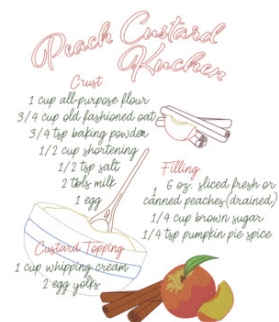 Peach Custard
Kuchen
Crust
1 cup all-purpose flour
3/4 cup old fashioned oat
3/4 tsp baking powder
1/2 cup shortening
1/2 tsp salt
2 tbls milk
1 egg
Filling
1 6 oz. sliced fresh or
canned peaches(drained)
1/4 cup brown sugar
1/4 tsp pumpkin pie spice
Custard Topping
1 cup whipping cream
2 egg yolks